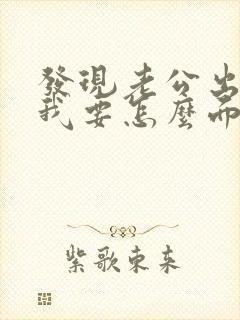 發現老公出
我要怎麼而
紫歌東来